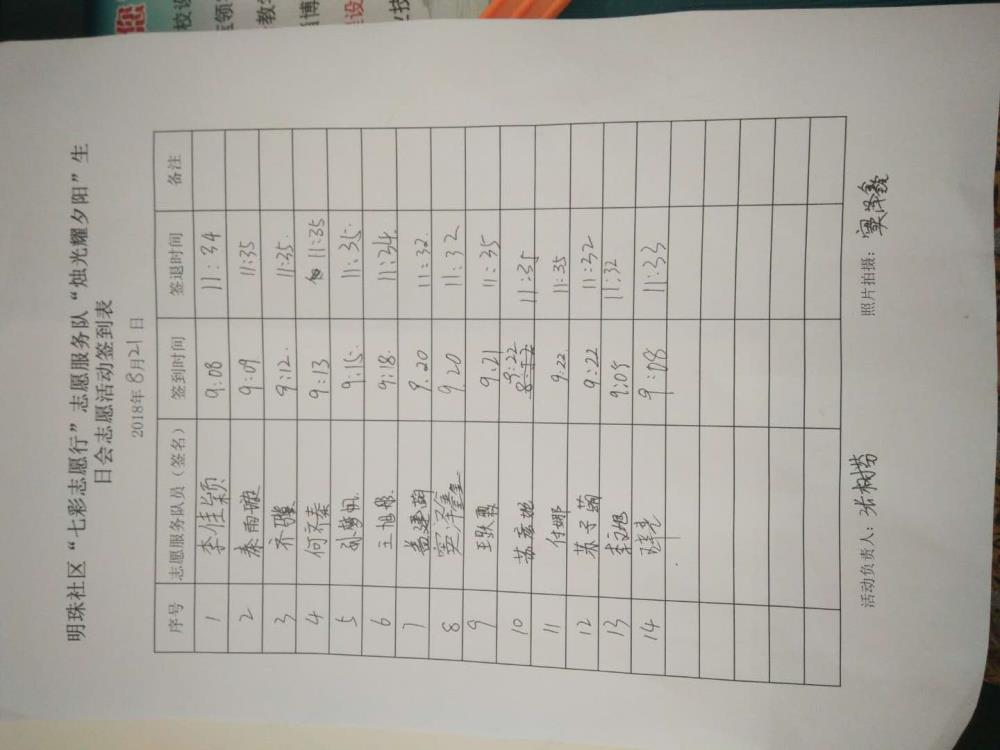 明珠社区“七彩志愿行”志愿服务队“烛光耀夕阳”生
日会志愿活动签到表
2018年8月21日
序号 志愿服务队员（签名） 签到时间 签退时间 备注
1 李佳颖 9:08 11:34
2 秦雨璇 9:09 11:35
3 齐骥 9:12 11:35
4 何齐秦 9:13 11:35
5 孙梦帆 9:15 11:35
6 王旭 9:18 11:34
7 9.20 11:32
8 窦泽鑫 9.20 11:32
9 王跃霞 9:21 11:35
10 苏 9:22 11:35
11 付娜 9:22 11:35
12 苏子菊 9:22 11:32
13 李旭 9:05 11:32
14 9:08 11:33
活动负责人：张树芬 照片拍摄：窦泽鑫